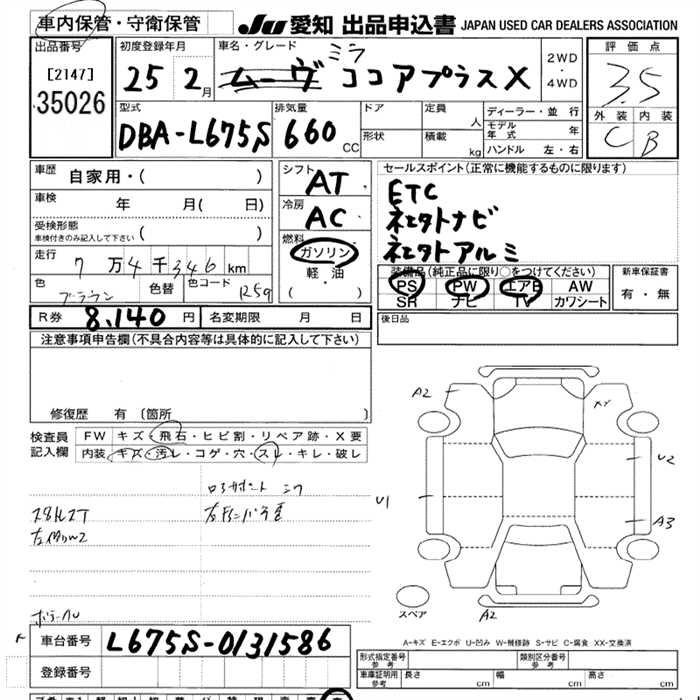 車内保管・守衛保管
JU 愛知 出品申込書 JAPAN USED CAR DEALERS ASSOCIATION
出品番号
[2147]
35026
初度登録年月
25 2月
車名・グレード
ムーヴ ミラ ココアプラスX
2WD
・
4WD
評価点
3.5
外装 内装
C B
型式
DBA-L675S
排気量
660 CC
ドア
形状
定員 人
積載 kg
ディーラー・並行
モデル年式 年
ハンドル 左・右
車歴 自家用・( )
車検 年 月( 日)
受検形態
車検付きのみ記入して下さい ( )
走行 7万4千346km
色 ブラウン 色替 色コード R59
シフト AT
冷房 AC
燃料
ガソリン
軽油
( ・ )
セールスポイント(正常に機能するものに限ります)
ETC
社外ナビ
社外アルミ
装備品(純正品に限り○をつけてください)
PS PW エアB AW
SR ナビ TV カワシート
新車保証書
有・無
R券 8,140円 名変期限 月 日
後日品
注意事項申告欄(不具合内容等は具体的に記入して下さい)
修復歴 有 (箇所 )
検査員
記入欄
FW キズ・飛石・ヒビ割・リペア跡・X要
内装 キズ・汚レ・コゲ・穴・スレ・キレ・破レ
A2
U2
U1
A3
スペア
A2
A-キズ E-エクボ U-凹み W-補修跡 S-サビ C-腐食 XX-交換済
車台番号 L675S-0131586
登録番号
形式指定番号
参考
類別区分番号
参考
車庫証明用
参考
長さ cm 幅 cm 高さ cm